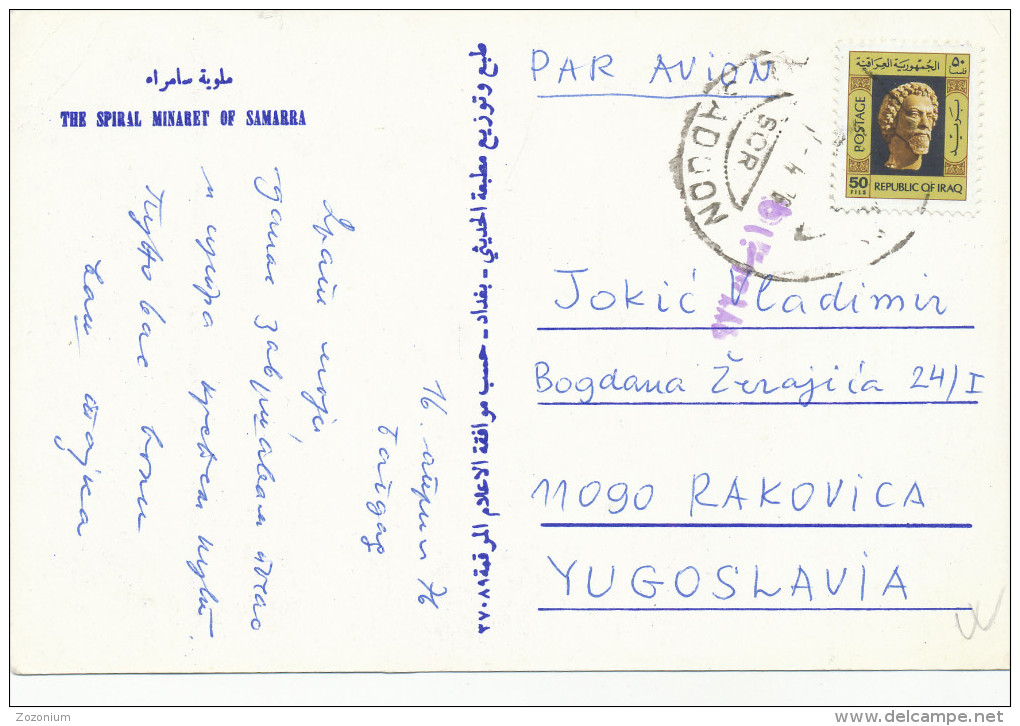 ملوية سامراء
THE SPIRAL MINARET OF SAMARRA
طبع وتوزيع مطبعة الحديثي - بغداد - حسب موافقة الاعلام المرقمة ٣٧٠٨٩
16. април 76
Багдад
Драги моји
данас завршавам посао
и сутра крећем кући.
Пуно вас воли
Ваш тајка
PAR AVION
الجمهورية العراقية
٥٠
فلسا
بريد
POSTAGE
50
FILS
REPUBLIC OF IRAQ
Jokić Vladimir
Bogdana Žerajića 24/I
11090 RAKOVICA
YUGOSLAVIA
Zozonium
delcampe.net